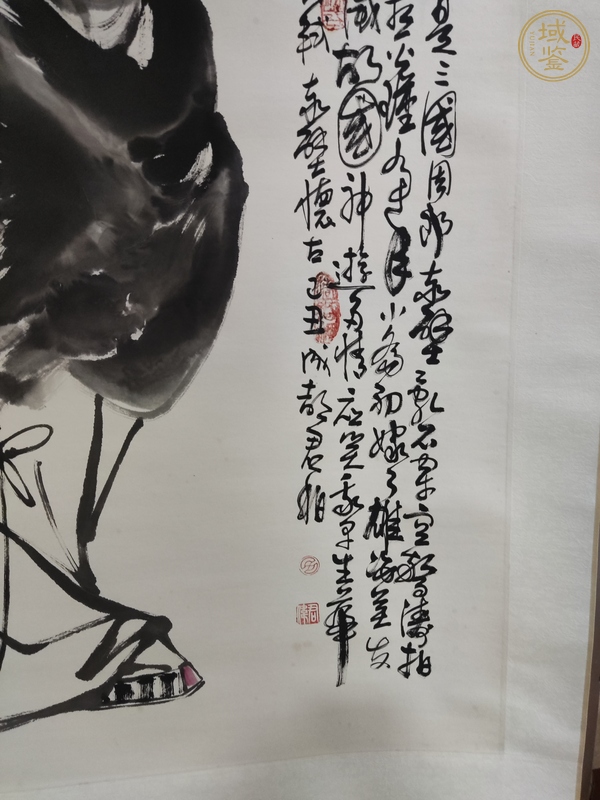 是三國周郎赤壁亂石穿空驚濤拍
想公瑾當年小喬初嫁了雄姿英发
滅故國神遊多情應笑我早生華
軾赤壁懷古己丑成都君
域鉴
YUJIAN